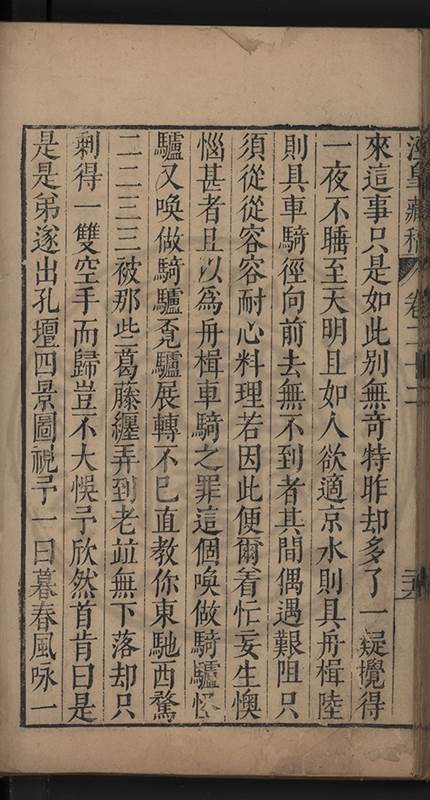 涇臯藏稿 卷二十二 二六
來這事只是如此别無竒特昨却多了一疑攪得
一夜不睡至天明且如人欲適京水則具舟楫陸
則具車騎徑向前去無不到者其間偶遇艱阻只
須從從容容耐心料理若因此便爾着忙妄生懊
惱甚者且以爲舟楫車騎之罪這個喚做騎驢怪
驢又喚做騎驢覔驢展轉不已直教你東馳西騖
二二三三被那些葛藤纏弄到老並無下落却只
剩得一雙空手而歸豈不大悞予欣然首肯曰是
是是弟遂出孔壇四景圖視予一曰暮春風咏一